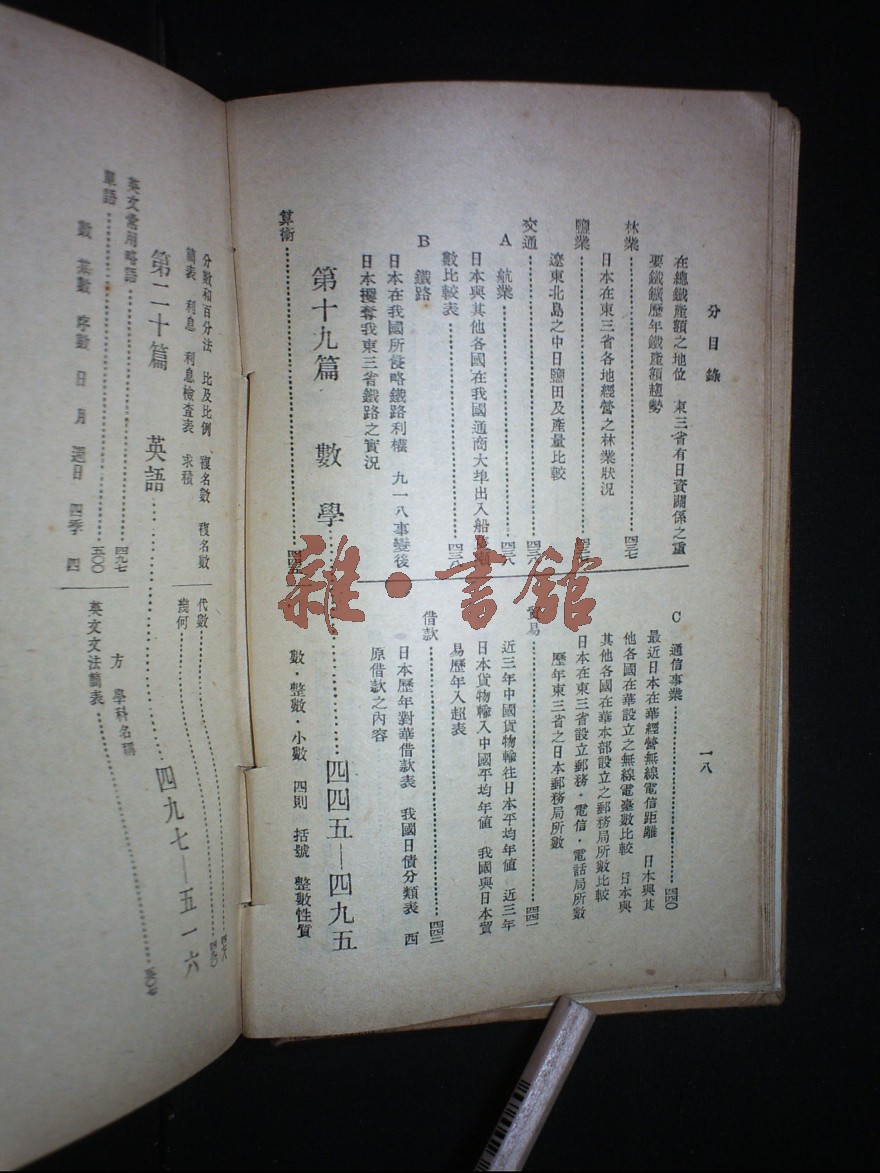 分目錄
一八
在總鐵產額之地位 東三省有日資關係之重
要鐵鑛歷年鐵產額趨勢
林業 四三七
日本在東三省各地經營之林業狀況
鹽業
遼東北島之中日鹽田及產量比較
交通 四三八
A 航業 四三八
日本與其他各國在我國通商大埠出入船隻
數比較表 四三八
B 鐵路
日本在我國所侵略鐵路利權 九一八事變後
日本攫奪我東三省鐵路之實況
C 通信事業 四四〇
最近日本在華經營無線電信距離 日本與其
他各國在華設立之無線電臺數比較 日本與
其他各國在華本部設立之郵務局所數比較
日本在東三省設立郵務・電信・電話局所數
歷年東三省之日本郵務局所數
貿易 四四一
近三年中國貨物輸往日本平均年値 近三年
日本貨物輸入中國平均年値 我國與日本貿
易歷年入超表
借款 四四三
日本歷年對華借款表 我國日債分類表 西
原借款之內容
第十九篇 數學 四四五—四九五
算術 四四五
數・整數・小數 四則 括號 整數性質
分數和百分法 比及比例 複名數 複名數
簡表 利息 利息檢查表 求積
代數 四七八
幾何 四九〇
第二十篇 英語 四九七—五一六
英文常用略語 四九七
單語 五〇〇
數 基數 序數 日 月 週日 四季 四
方 學科名稱
英文文法簡表 五〇七
雜・書館